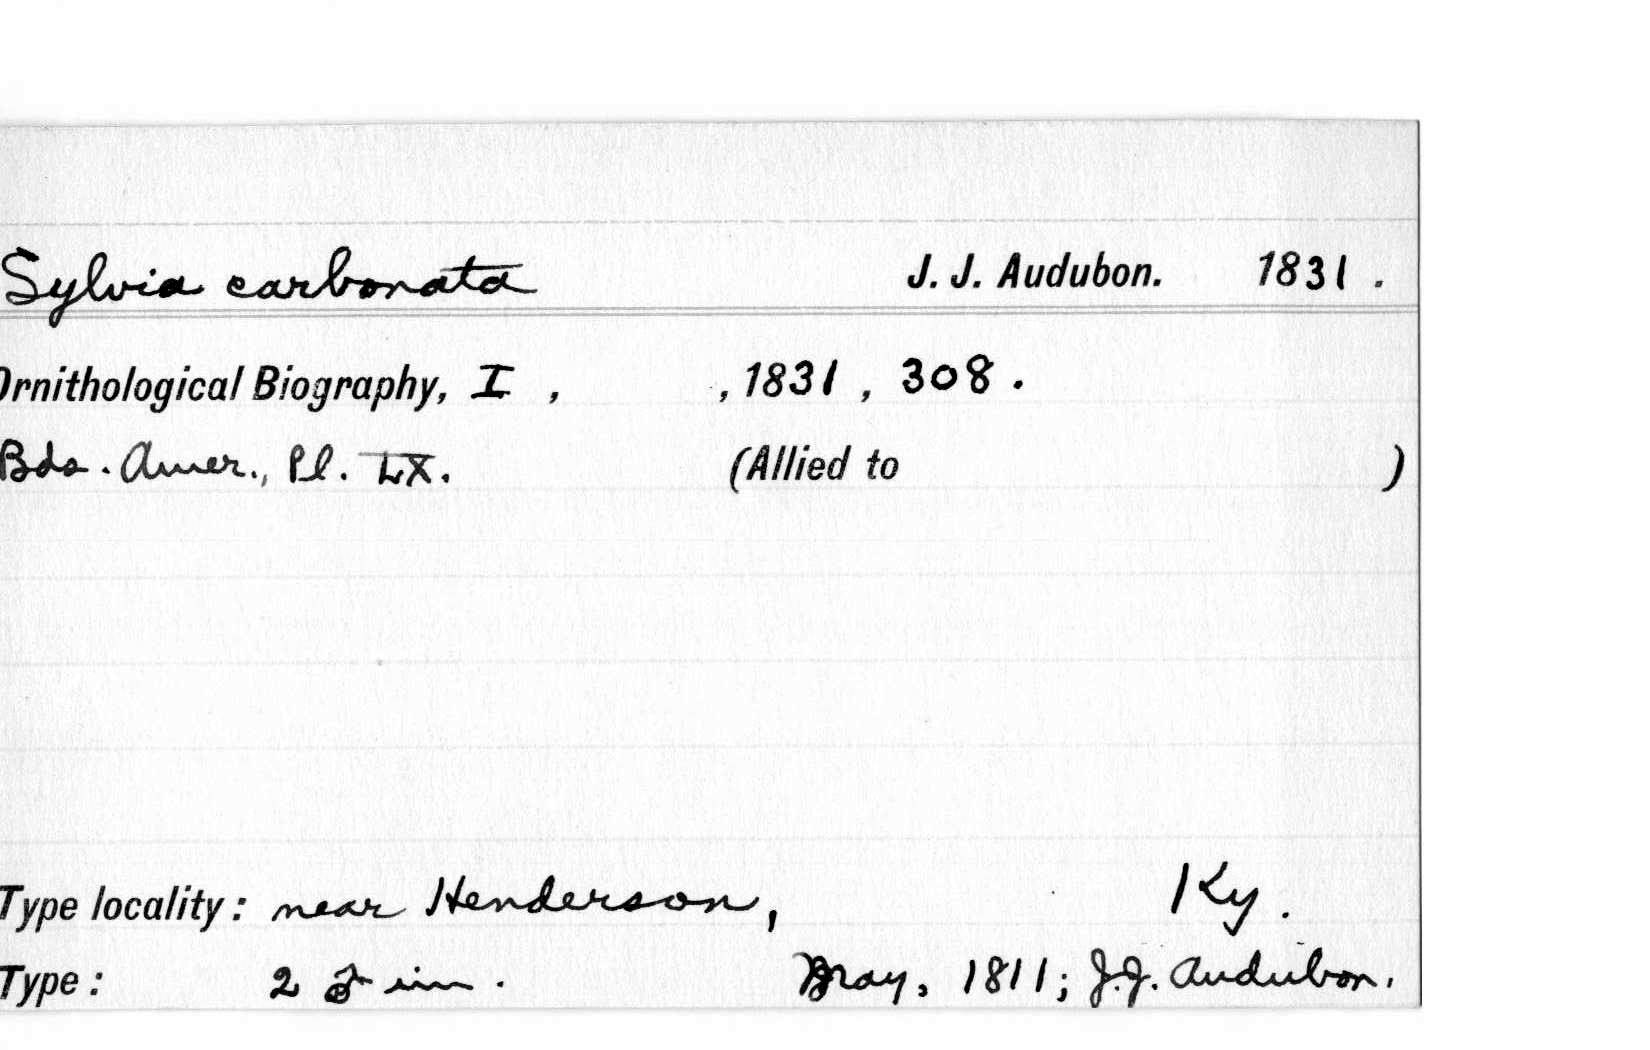 Sylvia carbonata J. J. Audubon. 1831.
Ornithological Biography, I , , 1831 , 308.
Bds. Amer., Pl. LX. (Allied to )
Type locality: near Henderson, Ky.
Type: 2 ♂ im. May, 1811; J.J. Audubon.